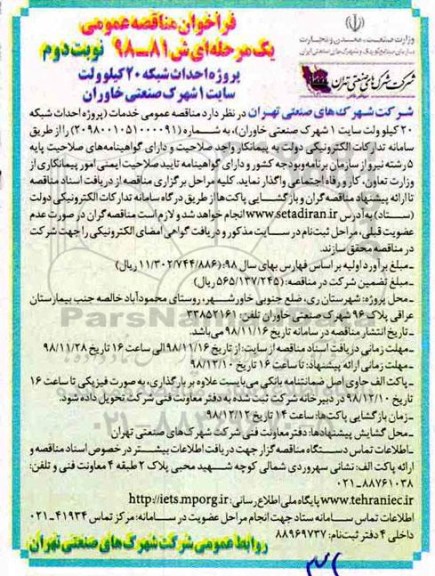 فراخوان مناقصه عمومی
یک مرحله‌ای ش ۸۱-۹۸ نوبت دوم
پروژه احداث شبکه ۲۰ کیلو ولت
سایت ۱ شهرک صنعتی خاوران
وزارت صنعت، معدن و تجارت
سازمان صنایع کوچک و شهرک‌های صنعتی ایران
شرکت شهرک‌های صنعتی تهران
شرکت شهرک‌های صنعتی تهران در نظر دارد مناقصه عمومی خدمات (پروژه احداث شبکه
۲۰ کیلو ولت سایت ۱ شهرک صنعتی خاوران)، به شماره (۲۰۹۸۰۰۱۰۵۱۰۰۰۰۹۱) را از طریق
سامانه تدارکات الکترونیکی دولت به پیمانکار واجد صلاحیت و دارای گواهینامه‌های صلاحیت پایه
۵ رشته نیرو از سازمان برنامه و بودجه کشور و دارای گواهینامه تایید صلاحیت ایمنی امور پیمانکاری از
وزارت تعاون، کار و رفاه اجتماعی واگذار نماید. کلیه مراحل برگزاری مناقصه از دریافت اسناد مناقصه
تا ارائه پیشنهاد مناقصه گران و بازگشایی پاکت‌ها از طریق درگاه سامانه تدارکات الکترونیکی دولت
(ستاد) به آدرس www.setadiran.ir انجام خواهد شد و لازم است مناقصه گران در صورت عدم
عضویت قبلی، مراحل ثبت‌نام در سایت مذکور و دریافت گواهی امضای الکترونیکی را جهت شرکت
در مناقصه محقق سازند.
-مبلغ برآورد اولیه بر اساس فهارس بهای سال ۹۸: (۱۱/۳۰۲/۷۴۴/۸۸۶ ریال)
-مبلغ تضمین شرکت در مناقصه: (۵۶۵/۱۳۷/۲۴۵ ریال)
-محل پروژه: شهرستان ری، ضلع جنوبی خاورشهر، روستای محمودآباد خالصه جنب بیمارستان
عراقی پلاک ۹۶ شهرک صنعتی خاوران تلفن: ۳۳۸۵۲۱۶۱
-تاریخ انتشار مناقصه در سامانه تاریخ ۹۸/۱۱/۱۶ می‌باشد.
-مهلت زمانی دریافت اسناد مناقصه از سایت: از تاریخ ۹۸/۱۱/۱۶ الی ساعت ۱۶ تاریخ ۹۸/۱۱/۲۸
-مهلت زمانی ارائه پیشنهاد: تا ساعت ۱۶ تاریخ ۹۸/۱۲/۱۰
-پاکت الف حاوی اصل ضمانتنامه بانکی می‌بایست علاوه بر بارگذاری، به صورت فیزیکی تا ساعت ۱۶
تاریخ ۹۸/۱۲/۱۰ در دبیرخانه شرکت ثبت شده به دفتر معاونت فنی شرکت تحویل داده شود.
-زمان بازگشایی پاکت‌ها: ساعت ۱۴ تاریخ ۹۸/۱۲/۱۲
-محل گشایش پیشنهادها: دفتر معاونت فنی شرکت شهرک‌های صنعتی تهران
-اطلاعات تماس دستگاه مناقصه گزار جهت دریافت اطلاعات بیشتر در خصوص اسناد مناقصه و
ارائه پاکت الف: نشانی سهروردی شمالی کوچه شهید محبی پلاک ۲ طبقه ۴ معاونت فنی و تلفن:
۰۲۱-۸۸۷۶۱۰۳۸
www.tehraniec.ir پایگاه ملی اطلاع رسانی: http://iets.mporg.ir
اطلاعات تماس سامانه ستاد جهت انجام مراحل عضویت در سامانه: مرکز تماس ۴۱۹۳۴-۰۲۱
داخلی ۴ دفتر ثبت‌نام: ۸۸۹۶۹۷۳۷
روابط عمومی شرکت شهرک‌های صنعتی تهران